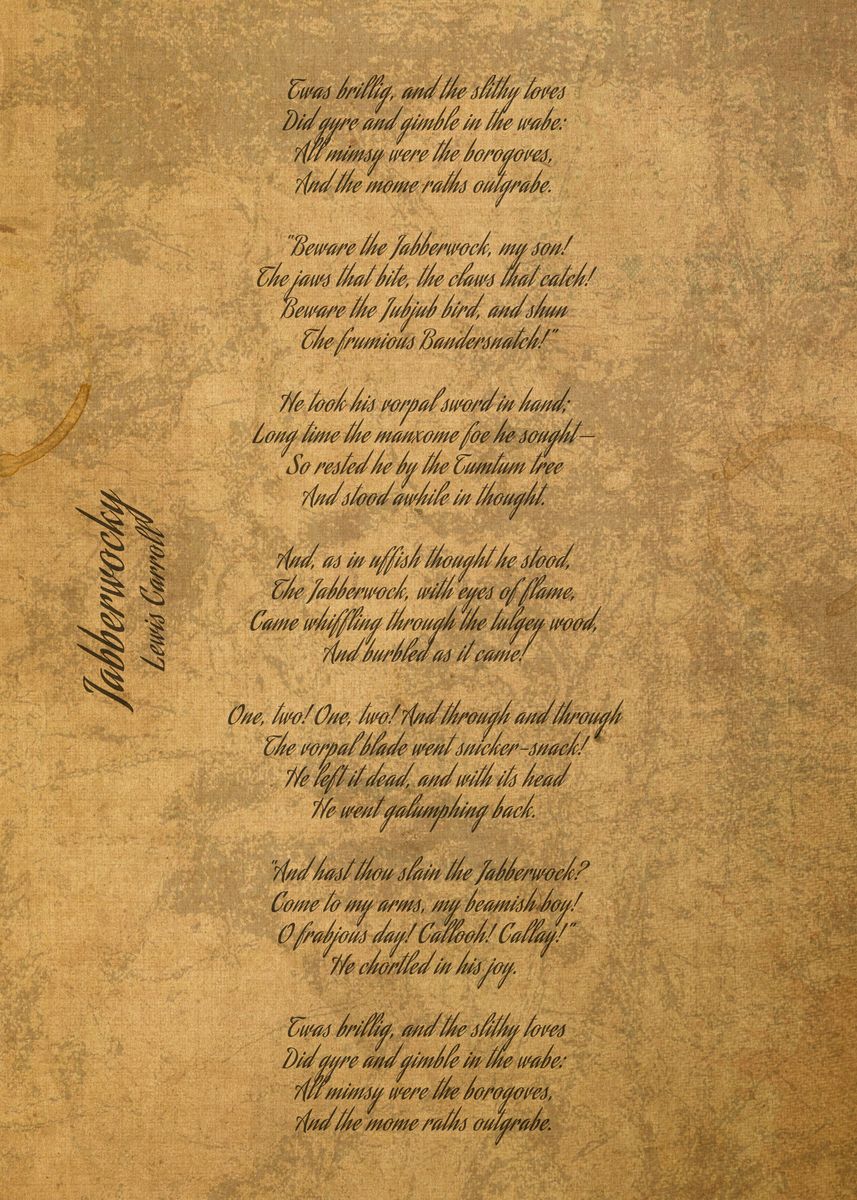 Twas brillig, and the slithy toves
Did gyre and gimble in the wabe:
All mimsy were the borogoves,
And the mome raths outgrabe.
"Beware the Jabberwock, my son!
The jaws that bite, the claws that catch!
Beware the Jubjub bird, and shun
The frumious Bandersnatch!"
He took his vorpal sword in hand;
Long time the manxome foe he sought—
So rested he by the Tumtum tree
And stood awhile in thought.
And, as in uffish thought he stood,
The Jabberwock, with eyes of flame,
Came whiffling through the tulgey wood,
And burbled as it came!
One, two! One, two! And through and through
The vorpal blade went snicker-snack!
He left it dead, and with its head
He went galumphing back.
"And hast thou slain the Jabberwock?
Come to my arms, my beamish boy!
O frabjous day! Callooh! Callay!"
He chortled in his joy.
Twas brillig, and the slithy toves
Did gyre and gimble in the wabe:
All mimsy were the borogoves,
And the mome raths outgrabe.
Jabberwocky
Lewis Carroll